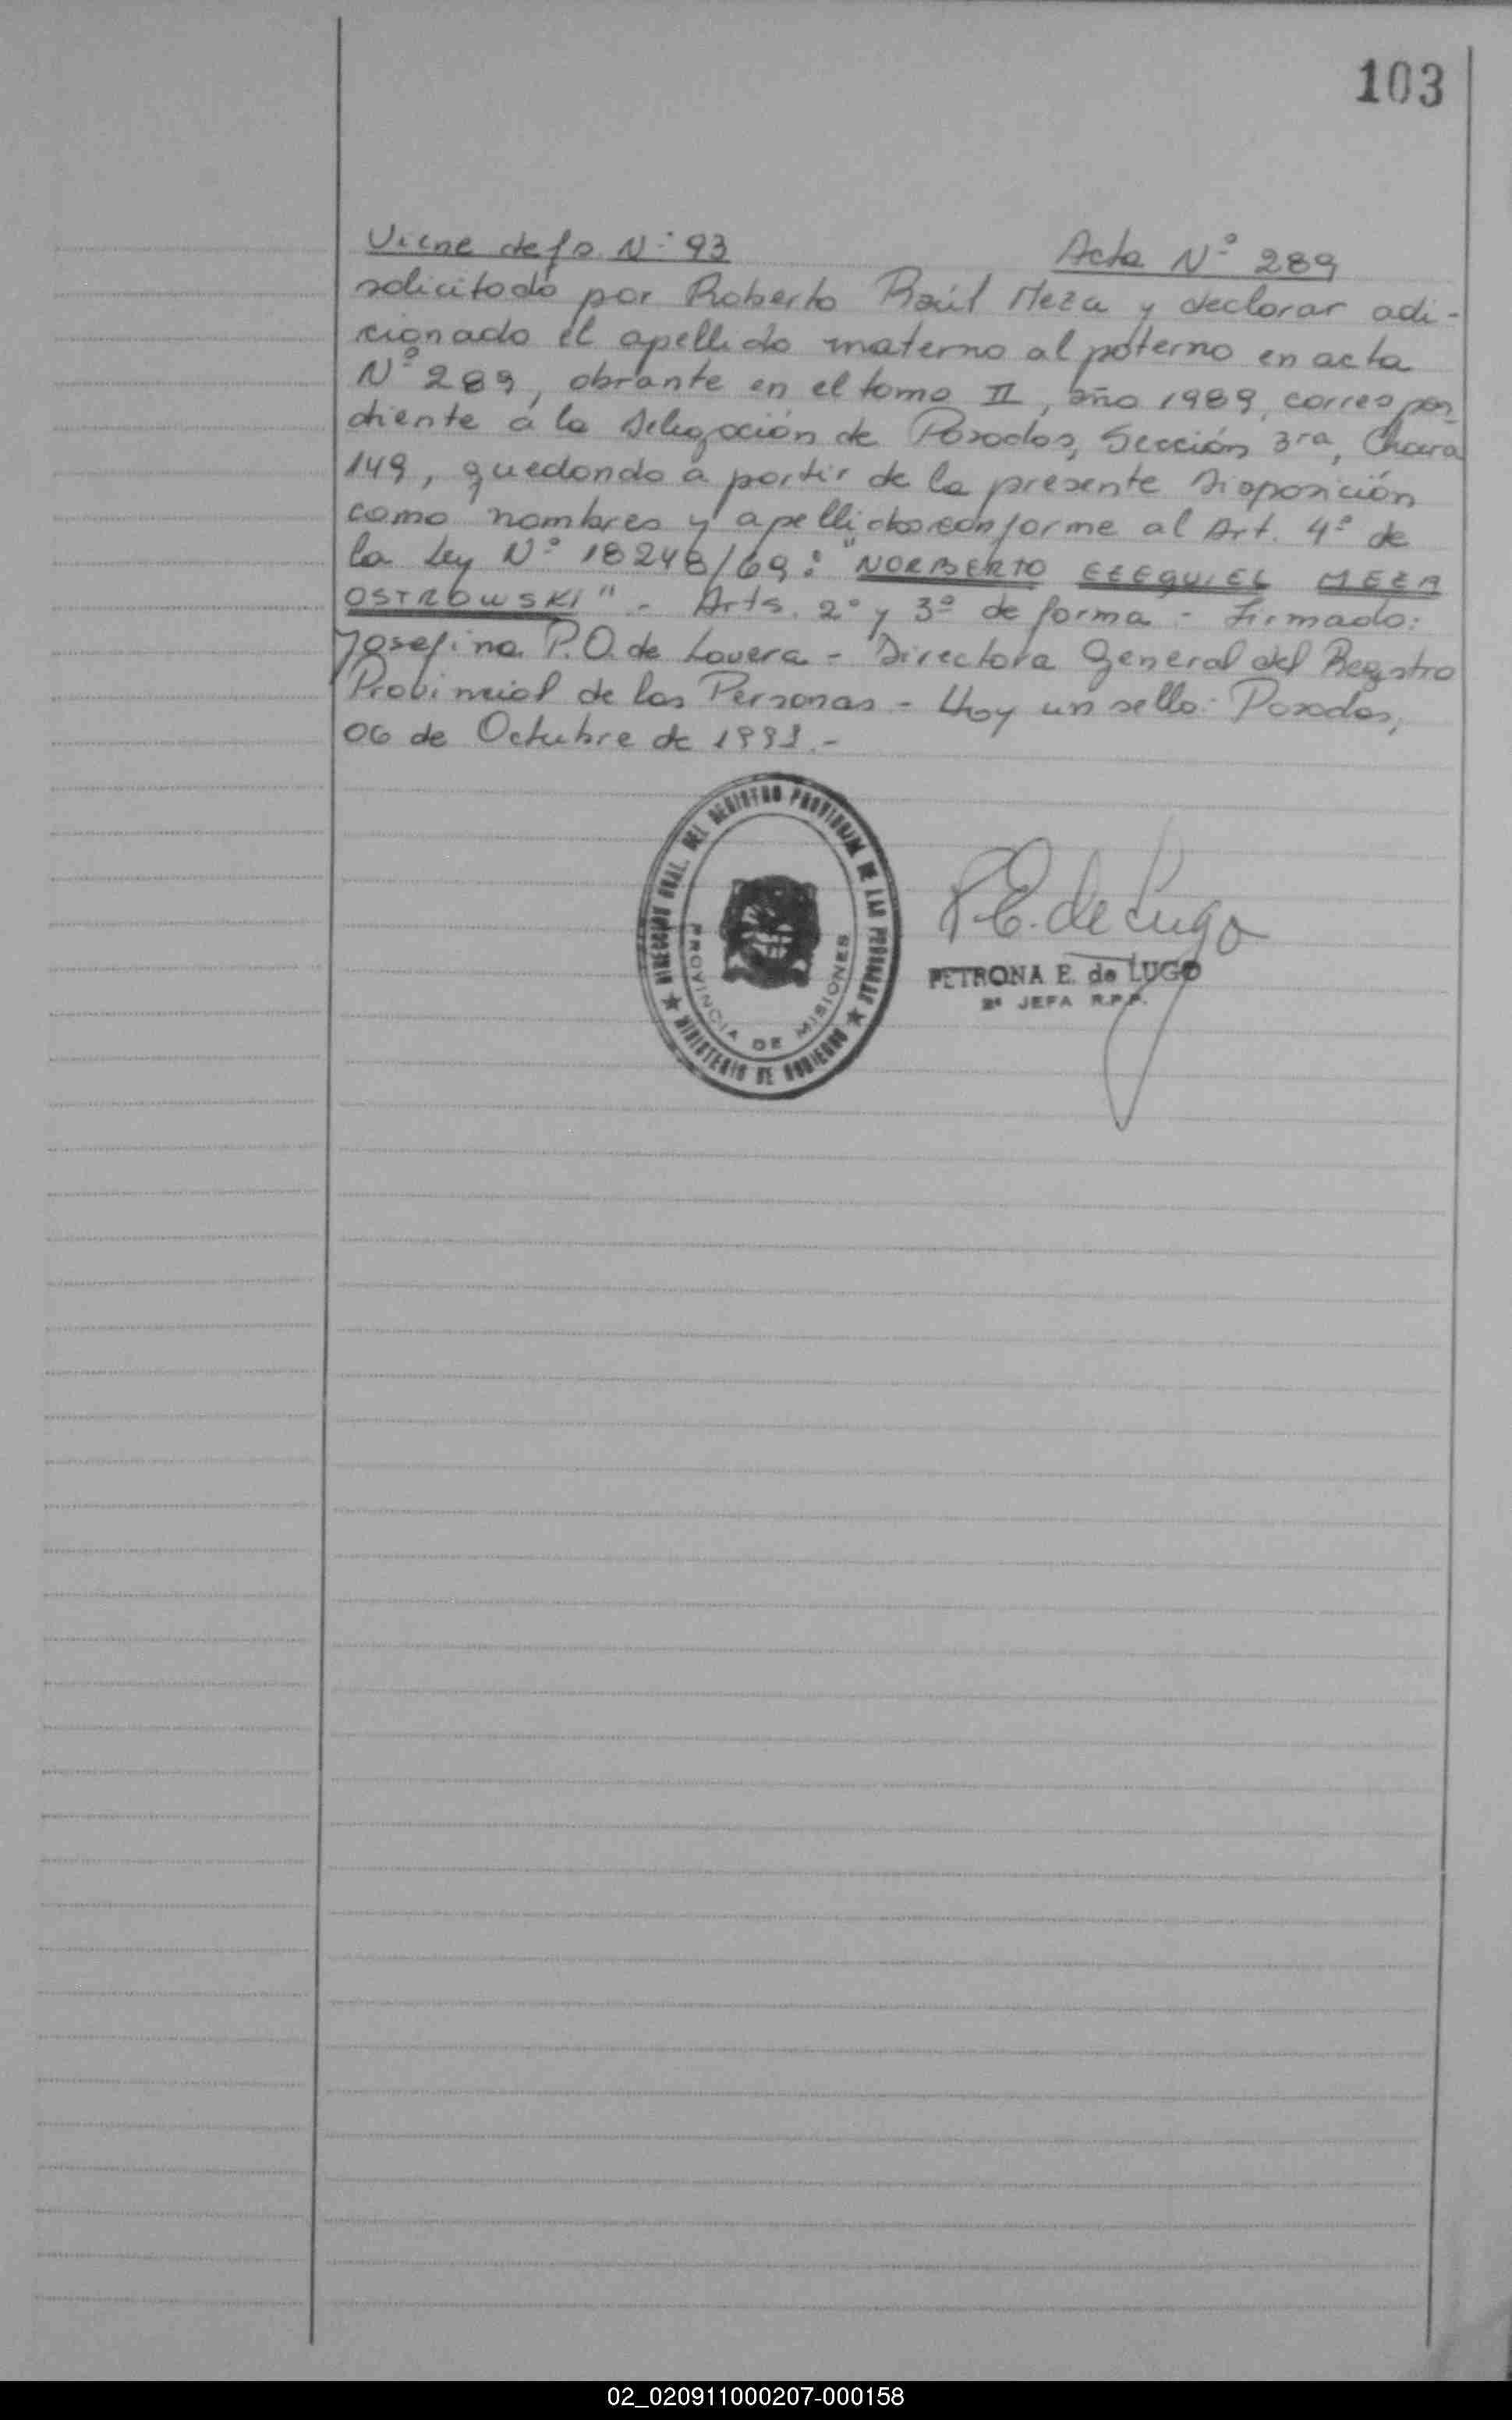 103
Viene de fo. Nº 93 Acta Nº 289
solicitado por Roberto Raúl Meza y declarar adi-
cionado el apellido materno al paterno en acta
Nº 289, obrante en el tomo II, año 1989, correspon
diente a la Delegación de Posadas, Sección 3ra, Chacra
149, quedando a partir de la presente Disposición
como nombres y apellidos conforme al Art. 4º de
la Ley Nº 18248/69: "NORBERTO EZEQUIEL MEZA
OSTROWSKI" - Arts. 2º y 3º de forma - Firmado:
Josefina P.O. de Lovera - Directora General del Registro
Provincial de las Personas - Hay un sello: Posadas,
06 de Octubre de 1991.-
DIRECCION GRAL. DEL REGISTRO PROVINCIAL DE LAS PERSONAS
★ MINISTERIO DE GOBIERNO ★
PROVINCIA DE MISIONES
P.E. de Lugo
PETRONA E. de LUGO
2ª JEFA R.P.P.
02_020911000207-000158